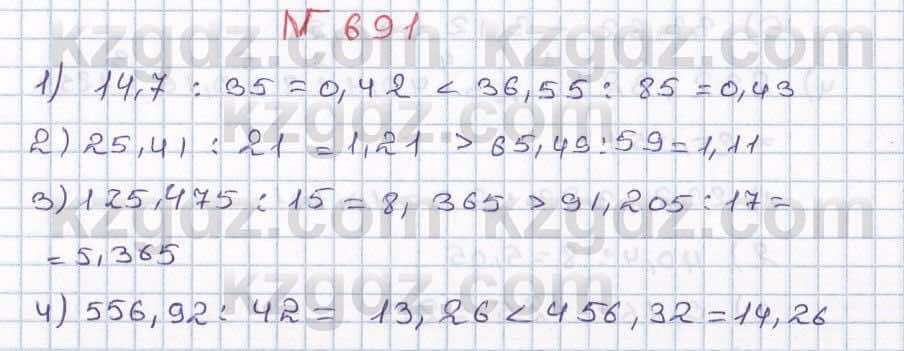 № 691
1) 14,7 : 35 = 0,42 < 36,55 : 85 = 0,43
2) 25,41 : 21 = 1,21 > 65,49 : 59 = 1,11
3) 125,475 : 15 = 8,365 > 91,205 : 17 =
= 5,365
4) 556,92 : 42 = 13,26 < 456,32 = 14,26
kzgdz.com